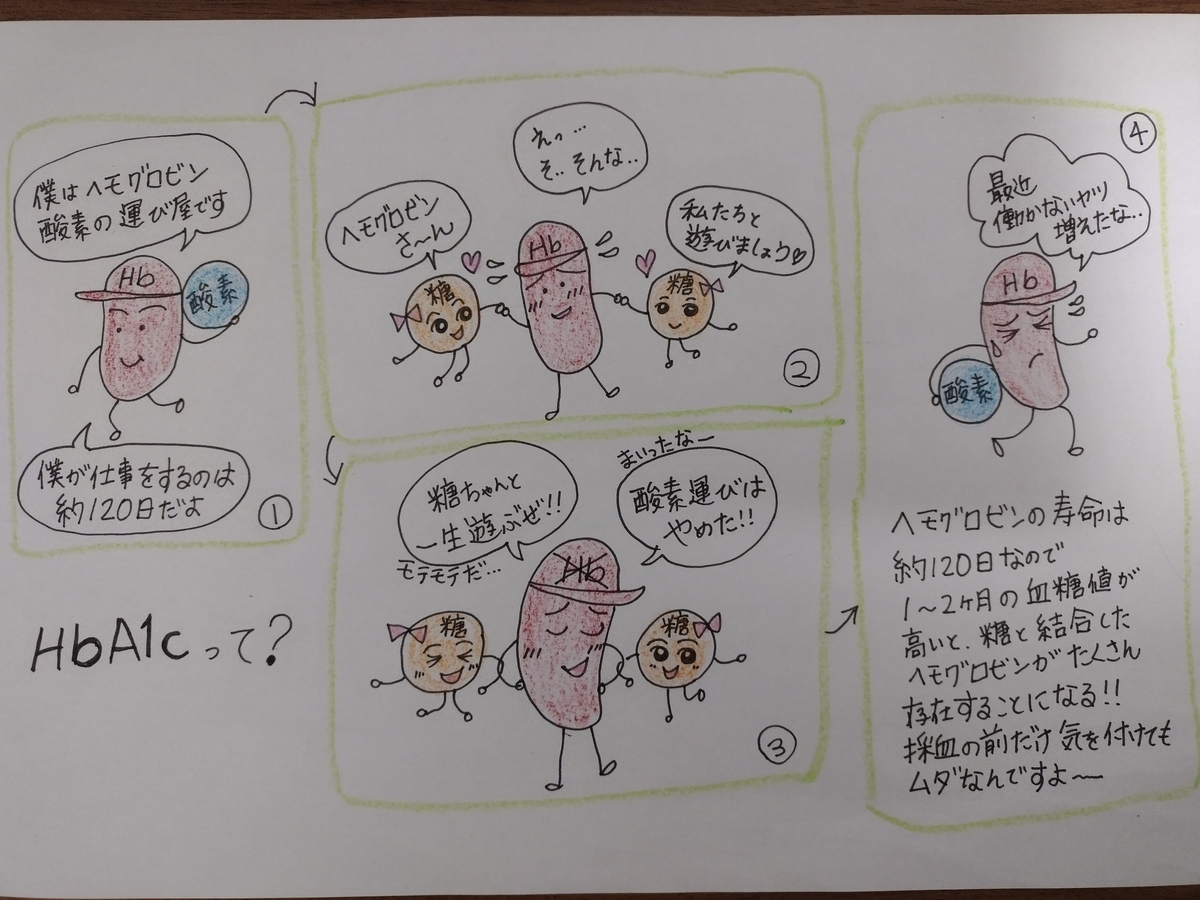 僕はヘモグロビン
酸素の運び屋です
Hb
酸素
僕が仕事をするのは
約120日だよ
①
えっ…
そ..そんな..
ヘモグロビン
さ〜ん
私たちと
遊びましょう♡
糖
Hb
糖
②
糖ちゃんと
一生遊ぶぜ!!
モテモテだ…
まいったなー
酸素運びは
やめた!!
Hb
糖
糖
③
④
最近
働かないヤツ
増えたな..
Hb
酸素
ヘモグロビンの寿命は
約120日なので
1〜2ヶ月の血糖値が
高いと、糖と結合した
ヘモグロビンがたくさん
存在することになる!!
採血の前だけ気を付けても
ムダなんですよ〜
HbA1cって?